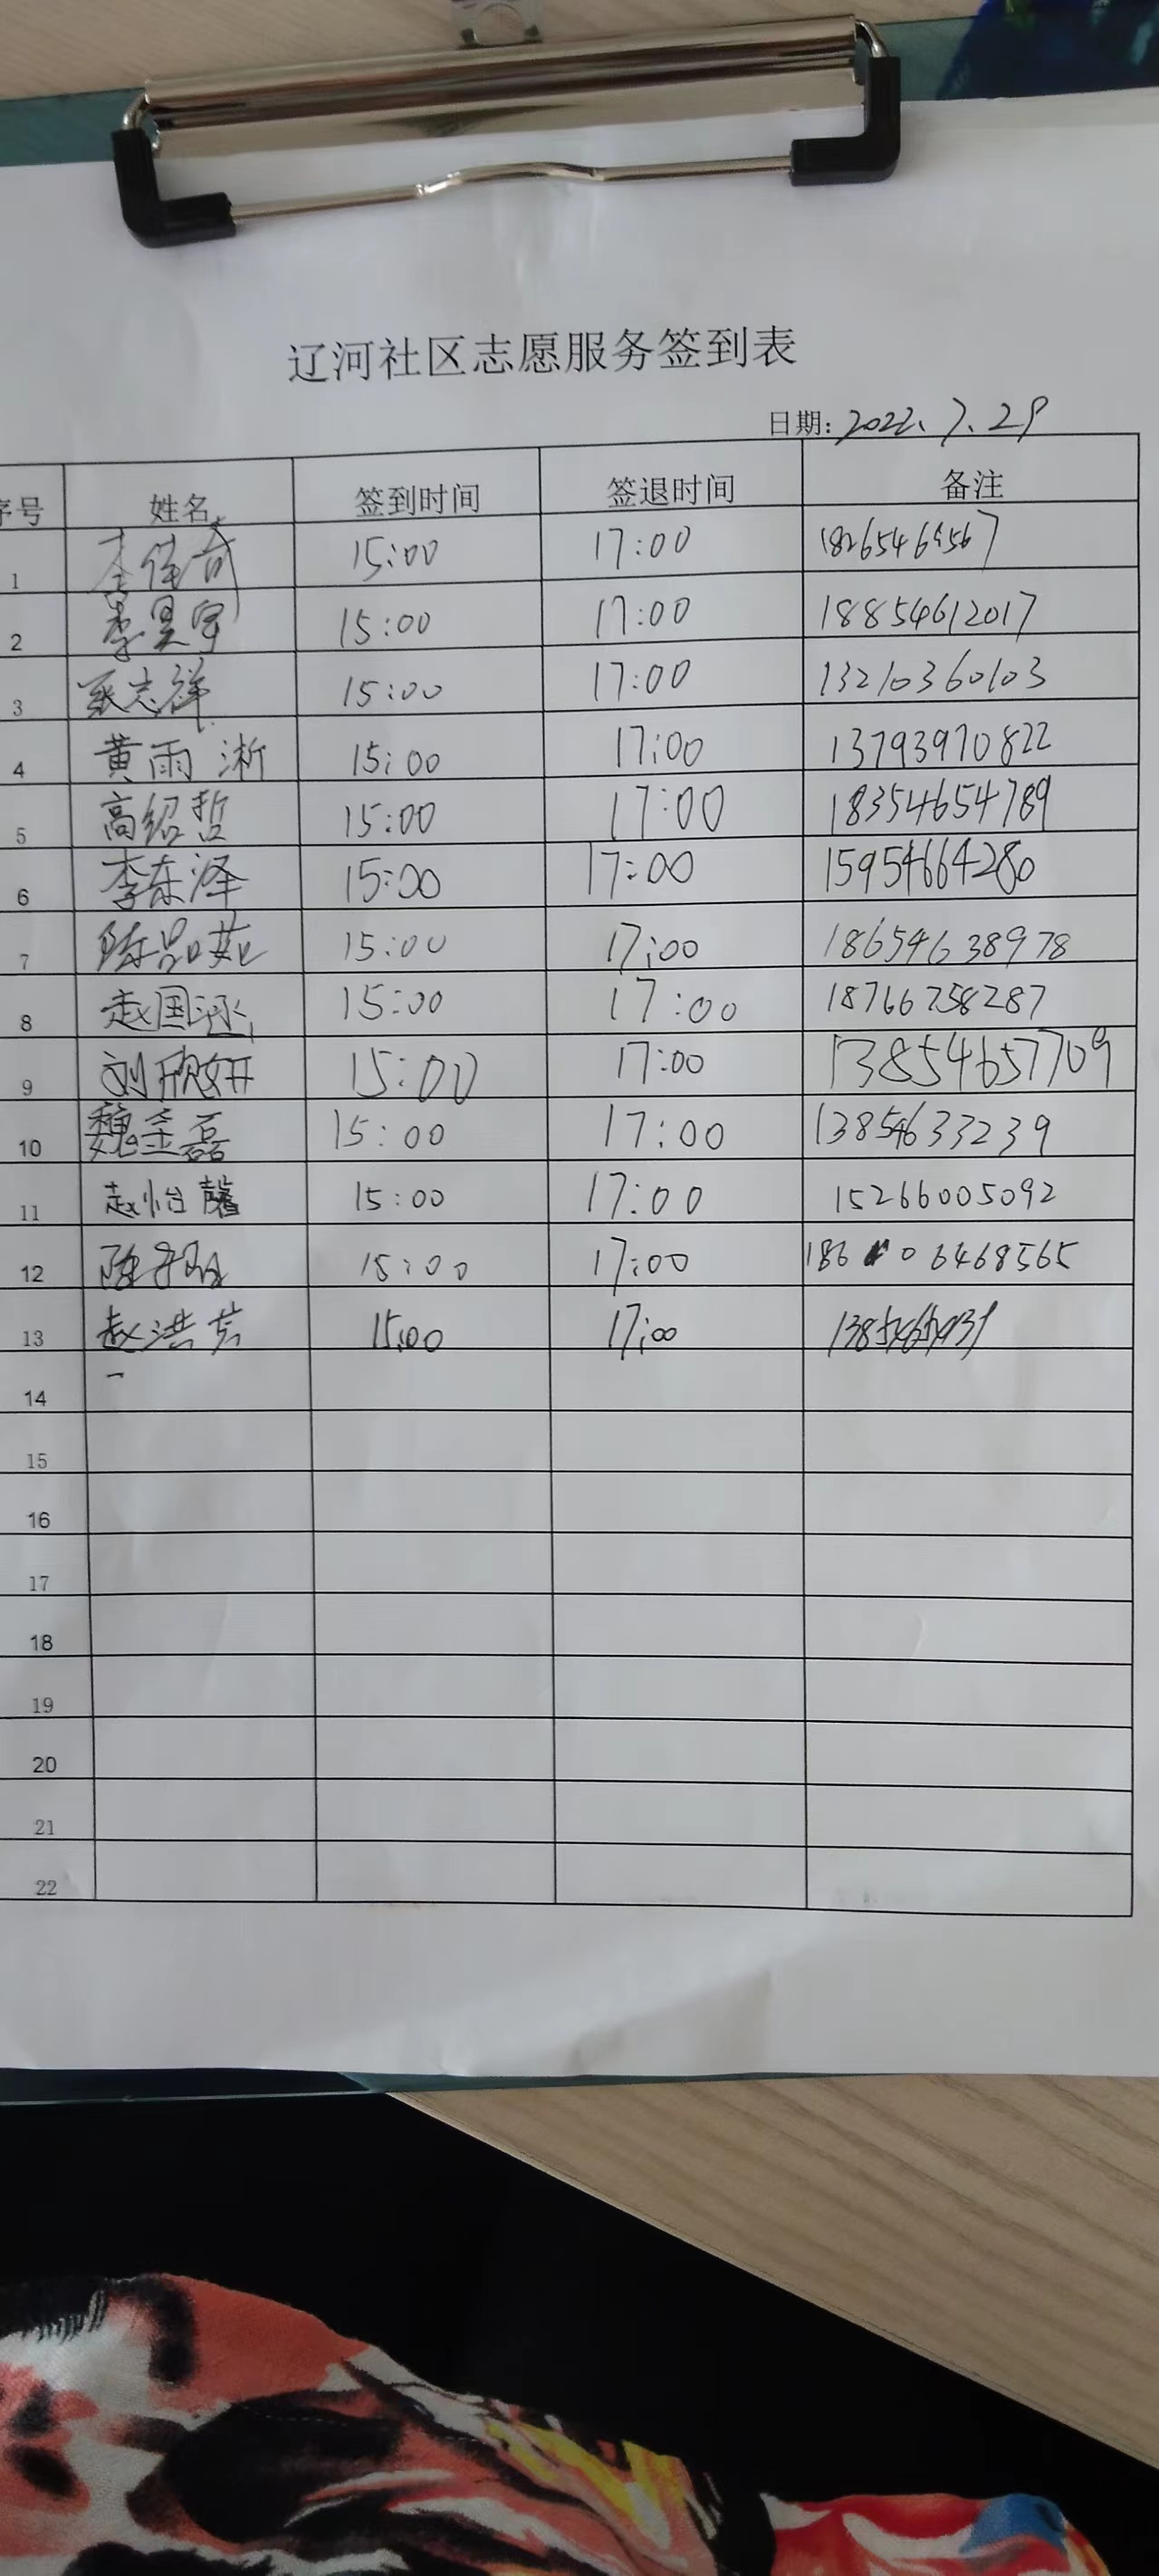 辽河社区志愿服务签到表
日期: 2022.7.29
序号 姓名 签到时间 签退时间 备注
1 李佳奇 15:00 17:00
2 李昊宇 15:00 17:00 18854612017
3 志祥 15:00 17:00 13210360103
4 黄雨淅 15:00 17:00 13793970822
5 高绍哲 15:00 17:00 18354654789
6 李东泽 15:00 17:00 15954664280
7 陈品 15:00 17:00 18654638978
8 赵国涵 15:00 17:00 18766758287
9 刘欣妍 15:00 17:00 13854657709
10 魏圣磊 15:00 17:00 13854633239
11 赵怡馨 15:00 17:00 15266005092
12 15:00 17:00 18606468565
13 赵洪芳 15:00 17:00
14
15
16
17
18
19
20
21
22